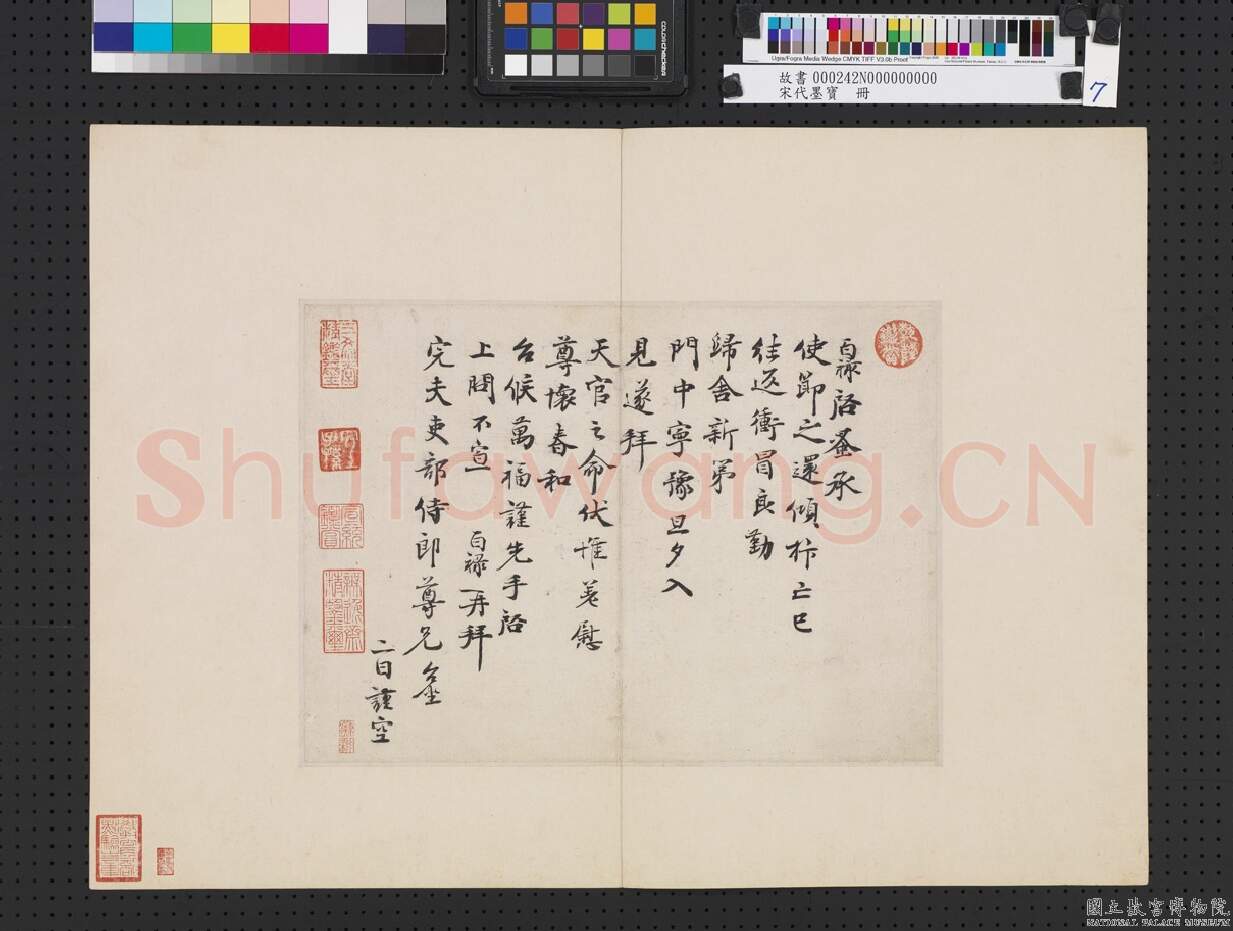 Ugra/Fogra Media Wedge CMYK TIFF V3.0b Proof
故書 000242N000000000
宋代墨寶 冊
7
百祿啓蚤承
使節之還傾忭亡已
往返衝冒良勤
歸舍新第
門中寧豫旦夕入
見遂拜
天官之命伏惟差慰
尊懷春和
台候萬福謹先手啓
上聞不宣 百祿再拜
完夫吏部侍郎尊兄台坐
二日謹空
Shufawang.CN
國立故宮博物院
NATIONAL PALACE MUSEUM